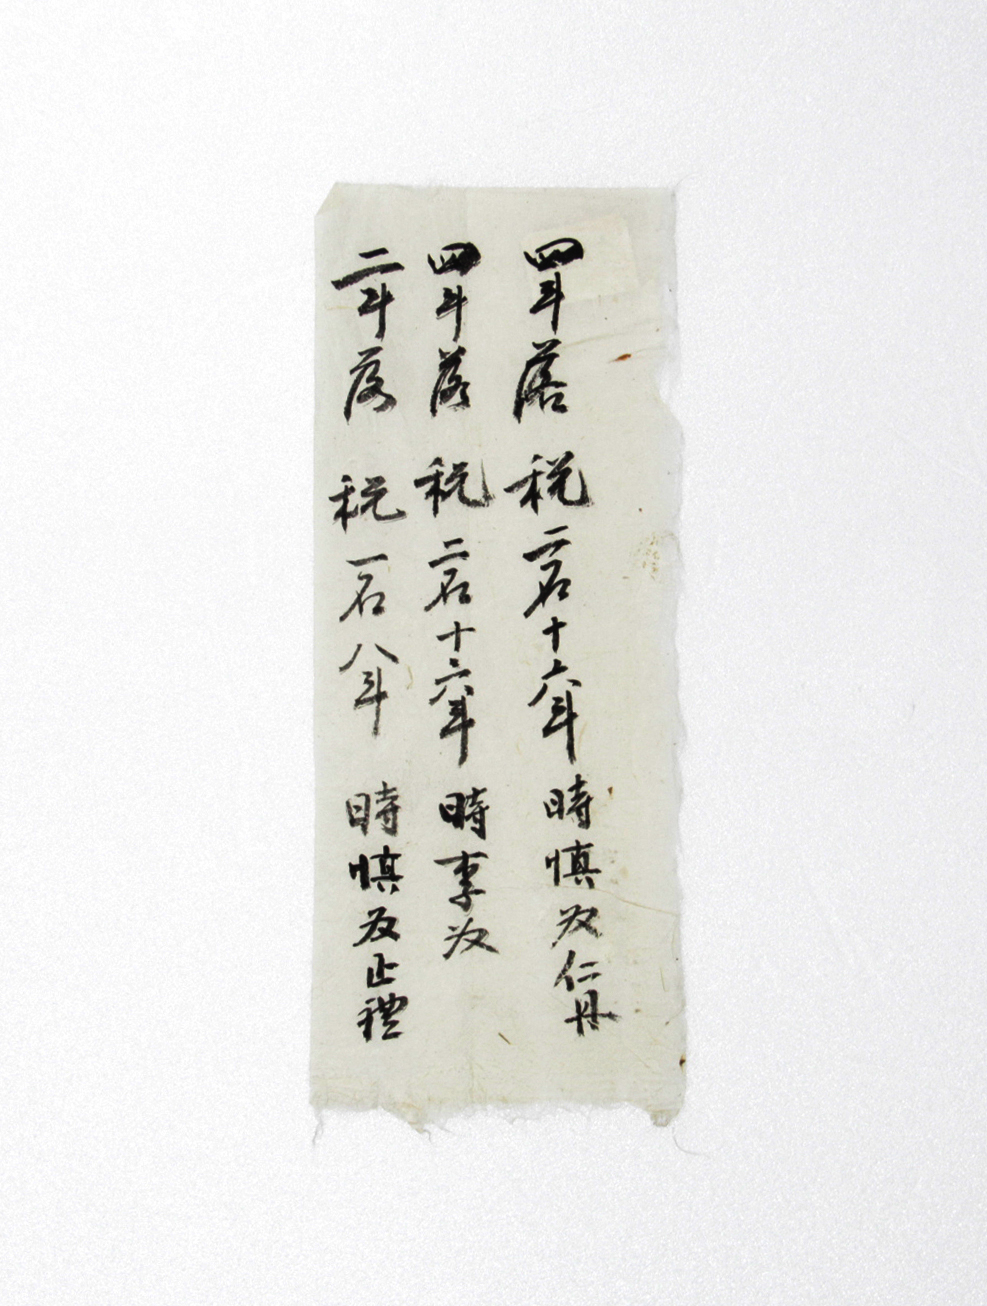 四斗落 税二石十六斗 時愼友仁丹
四斗落 税二石十六斗 時李友
二斗落 税一石八斗 時愼友止禮